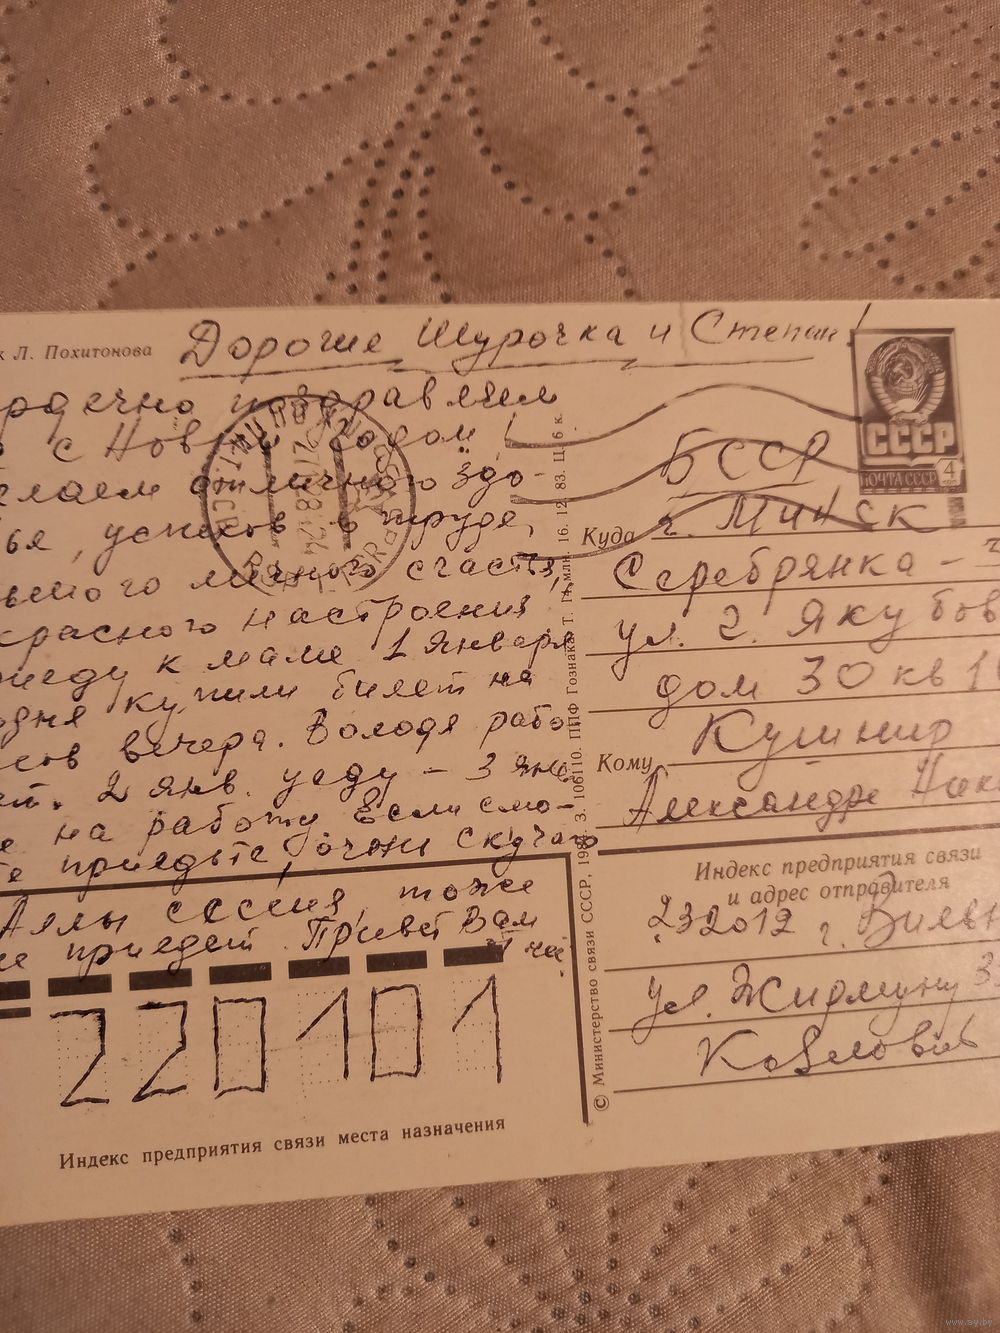 к Л. Похитонова
Дорогие Шурочка и Степан!
рдечно поздравляем
с Новым Годом!
елаем отличного здо
ья, успехов в труде,
ьшого личного счастья,
красного настроения,
риеду к маме 1 Января
одня купили билет на
сов вечера. Володя рабо
ет. 2 янв. уеду – 3 янв
е на работу Если смо-
те приедьте, очень скучаю
Аллы сессия, тоже
не приедет. Привет Вам
220101
Индекс предприятия связи места назначения
© Министерство связи СССР, 198 З. 106110. ППФ Гознака. Т. 14 млн. 16. 12. 83. Ц. 6 к.
СССР
ПОЧТА СССР 4
БССР
Куда г. Минск
Серебрянка –
ул. Г. Якубов
дом 30 кв 1
Кушнир
Кому
Александре Ник
Индекс предприятия связи
и адрес отправителя
232012 г. Вильн
ул. Жирмуну 3
Козлович
www.ay.by